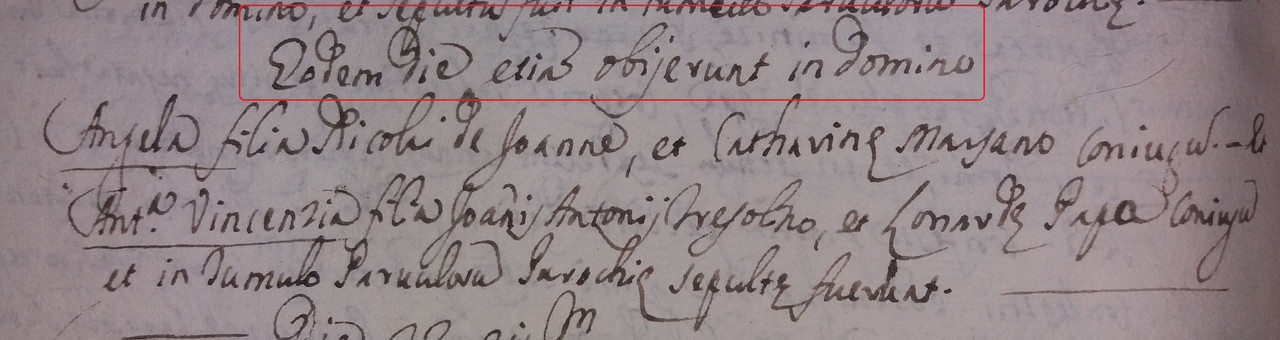 in Domino, et sepultus fuit in tumulo Parvulorũ Parochię.
Eodem die etiã obijerunt in Domino
Angela filia Nicolai de Joanne, et Catharinę Marsano Coniugũ. - et
Ant.ª Vincenzia filia Joañis Antonij Tresolno, et Lonardę Papa Coniugũ
et in Tumulo Parvulorũ Parochię sepultę fuerunt.
Die